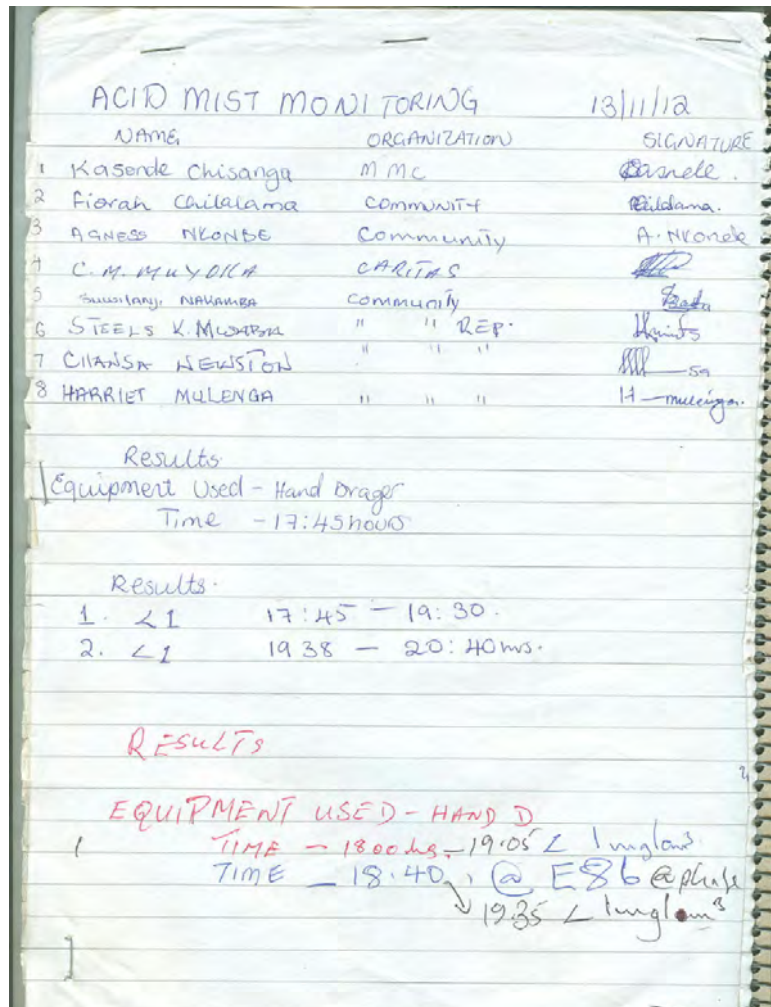 ACID MIST MONITORING 13/11/12
NAME ORGANIZATION SIGNATURE
1 Kasonde Chisanga MMC
2 Fiorah Chilalama COMMUNITY
3 AGNESS NKONDE Community A. Nkonde
4 C. M. MUYOKA CARITAS
5 Suwilanji NAKAMBA Community
6 STEELS K. MWABA " " REP.
7 CHANSA NEWSTON " " "
8 HARRIET MULENGA " " " H mulenga.
Results
Equipment Used - Hand Drager
Time - 17:45hours
Results.
1. <1 17:45 - 19:30.
2. <1 1938 - 20:40hrs.
RESULTS
EQUIPMENT USED - HAND D
TIME - 1800hrs - 19.05 < 1mg/am3
TIME - 18.40, @ E86 @
19.35 < 1mg/am3